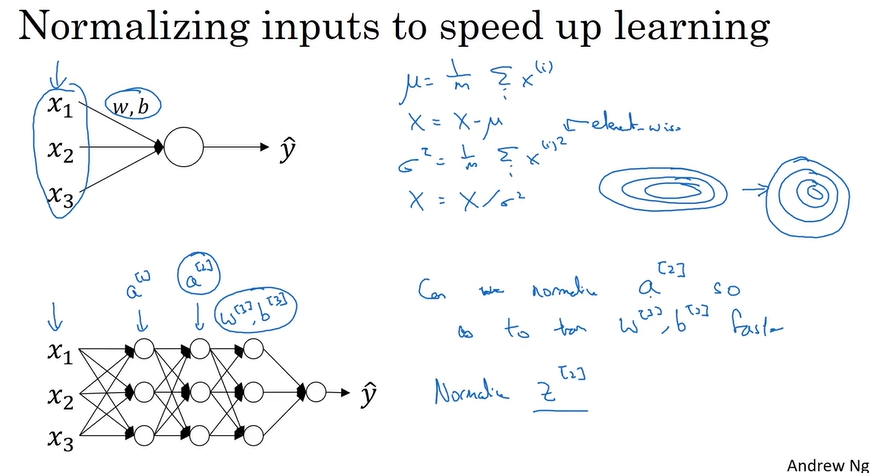 Normalizing inputs to speed up learning
x₁
x₂
x₃
w, b
ŷ
μ = 1/m Σᵢ x⁽ⁱ⁾
X = X - μ
σ² = 1/m Σᵢ x⁽ⁱ⁾² ← element-wise
X = X / σ²
a^[1]
a^[2]
w^[3], b^[3]
x₁
x₂
x₃
ŷ
Can we normalize a^[2] so
as to train w^[3], b^[3] faster
Normalize z^[2]
Andrew Ng